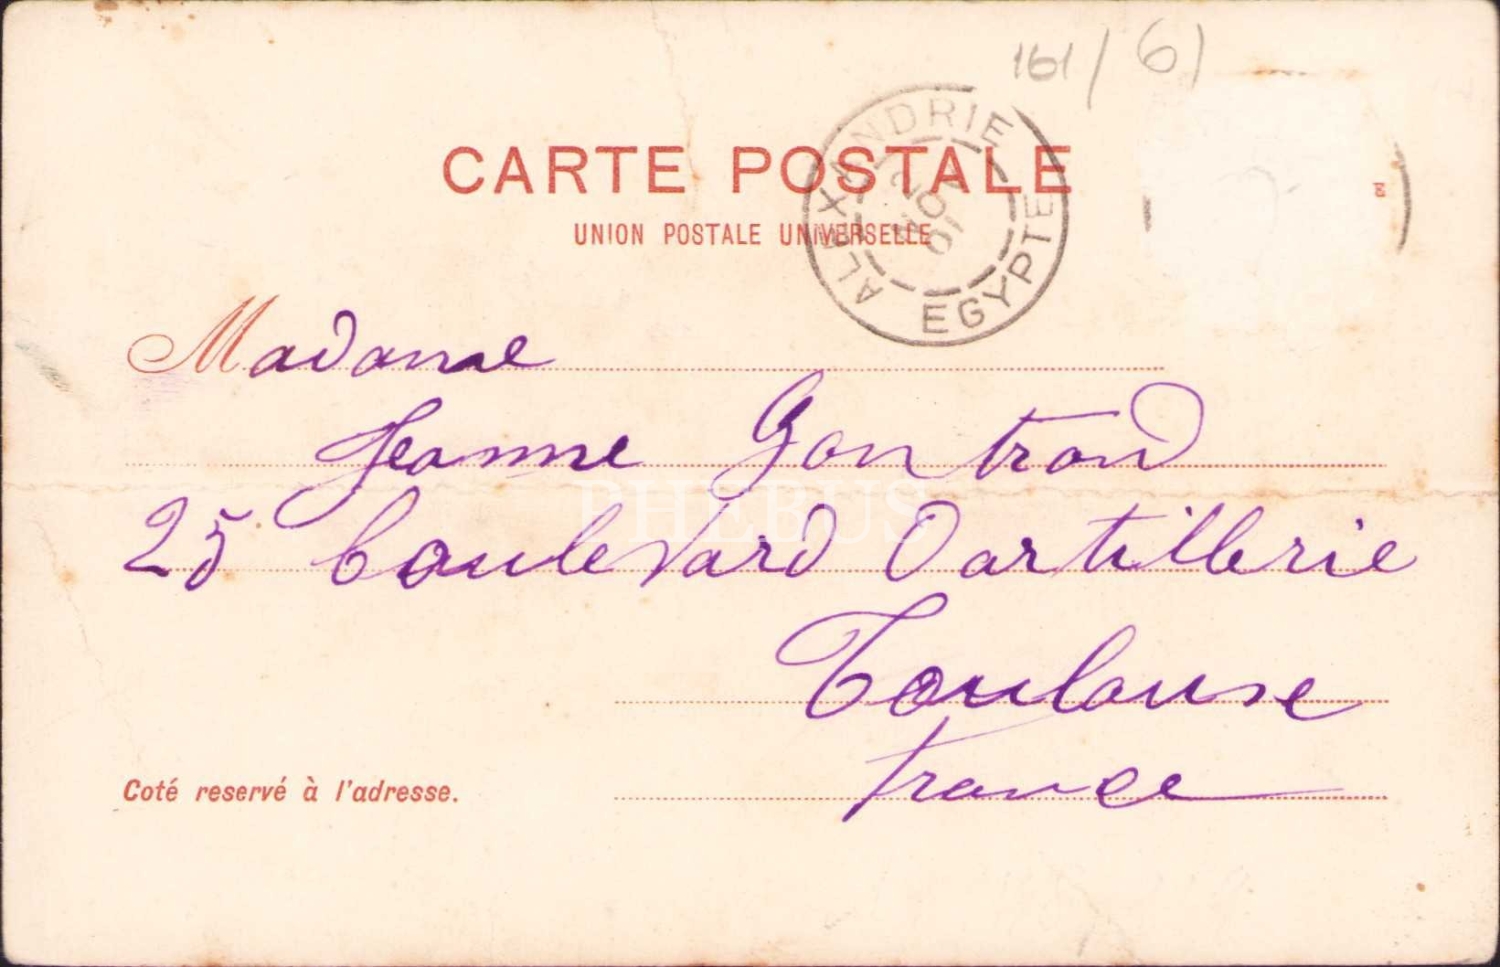 161/61
CARTE POSTALE
UNION POSTALE UNIVERSELLE
ALEXANDRIE
EGYPTE
Madame
Jeanne Gontrand
25 boulevard Dartillerie
PHEBUS
Toulouse
france
Coté reservé à l'adresse.